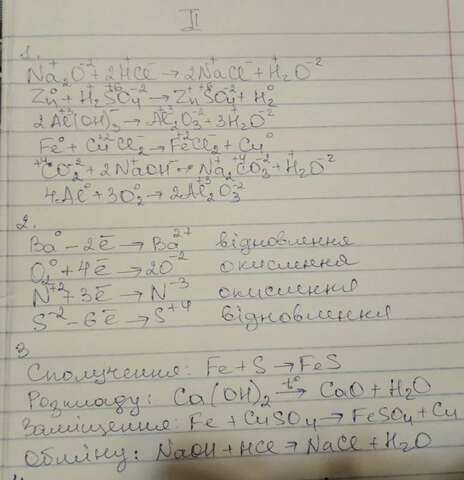 II
1.
Na₂⁺O⁻² + 2H⁺Cl⁻ → 2Na⁺Cl⁻ + H₂⁺O⁻²
Zn⁰ + H₂⁺S⁺⁶O₄⁻² → Zn⁺²S⁺⁶O₄⁻² + H₂⁰
2Al(OH)₃ → Al₂⁺³O₃⁻² + 3H₂⁺O⁻²
Fe⁰ + Cu⁺²Cl₂⁻ → Fe⁺²Cl₂⁻ + Cu⁰
C⁺⁴O₂⁻² + 2NaOH → Na₂⁺C⁺⁴O₃⁻² + H₂⁺O⁻²
4Al⁰ + 3O₂⁰ → 2Al₂⁺³O₃⁻²
2.
Ba⁰ – 2ē → Ba²⁺ відновлення
O₂⁰ + 4ē → 2O⁻² окислення
N⁺² + 3ē → N⁻³ окислення
S⁻² – 6ē → S⁺⁴ відновлення
3
Сполучення: Fe + S → FeS
Розкладу: Ca(OH)₂ –t°→ CaO + H₂O
Заміщення: Fe + CuSO₄ → FeSO₄ + Cu
Обміну: NaOH + HCl → NaCl + H₂O